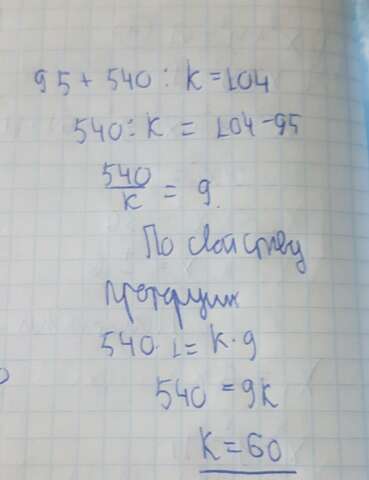 95 + 540 : K = 104
540 : K = 104 - 95
540/K = 9.
По свойству
пропорции
540 · 1 = K · 9
540 = 9K
K = 60